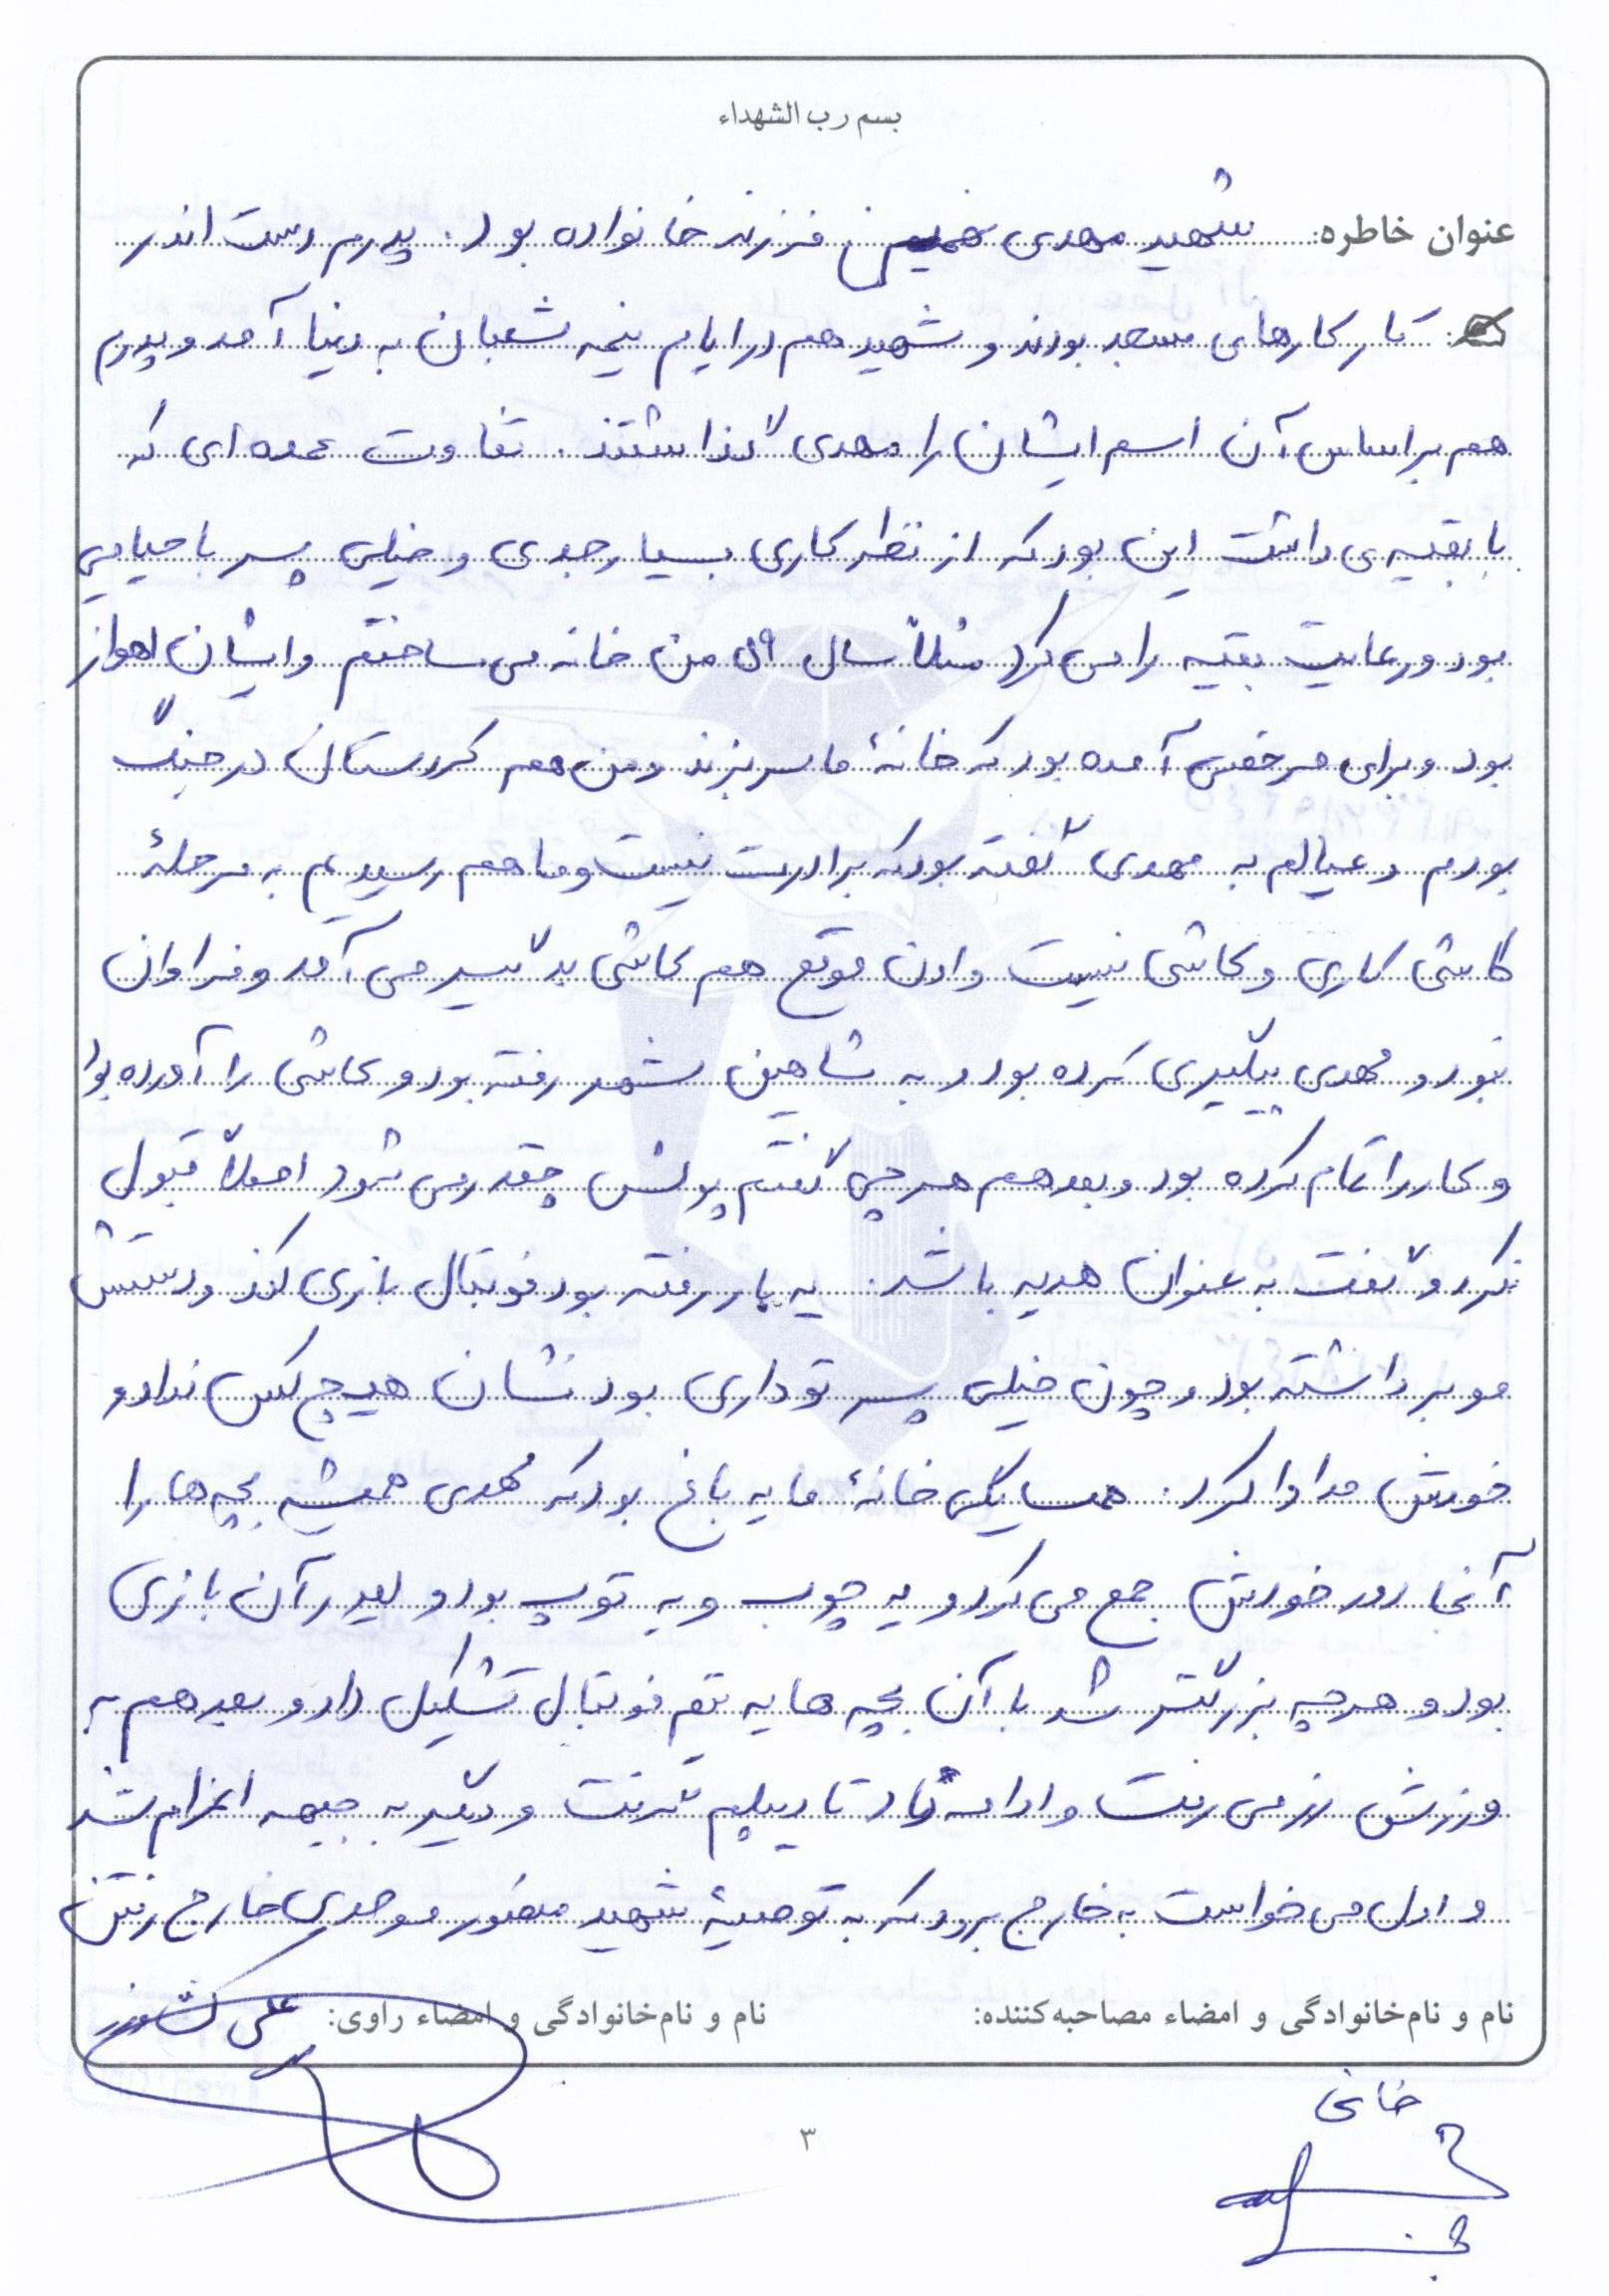 بسم رب الشهداء
عنوان خاطره: شهید مهدی فرزند خانواده بود. پدرم دست اندر
کار کارهای مسجد بودند و شهید هم در ایام نیمه شعبان به دنیا آمد و پدرم
هم بر اساس آن اسم ایشان را مهدی گذاشتند. تفاوت عمده ای که
با بقیه ی داشت این بود که از نظر کاری بسیار جدی و خیلی پسر با حیایی
بود و رعایت بقیه را می کرد مثلاً سال ۵۹ من خانه می ساختم و ایشان اهواز
بود و برای مرخصی آمده بود که خانهٔ ما سر بزند و من هم کردستان در جنگ
بودم و عیالم به مهدی گفته بود که برادرت نیست و ما هم رسیدیم به مرحلهٔ
کاشی کاری و کاشی نیست و اون موقع هم کاشی بد گیر می آمد و فراوان
نبود و مهدی پیگیری کرده بود و به شاهین شهر رفته بود و کاشی را آورده بود
و کار را تمام کرده بود و بعد هم هر چی گفتم پولش چقدر می شود اصلاً قبول
نکرد و گفت به عنوان هدیه باشد. یه بار رفته بود فوتبال بازی کند و دستش
مو برداشته بود و چون خیلی پسر توداری بود نشان هیچ کس نداد و
خودش مداوا کرد. همسایگی خانهٔ ما یه باغ بود که مهدی همیشه بچه ها را
آنجا دور خودش جمع می کرد و یه چوب و یه توپ بود و لیدر آن بازی
بود و هرچه بزرگتر شد با آن بچه ها یه تیم فوتبال تشکیل داد و بعد هم به
ورزش رزمی رفت و ادامه داد تا دیپلم گرفت و دیگر به جبهه اعزام شد
و اول می خواست به خارج برود که به توصیهٔ شهید منصور موحدی خارج رفتن
نام و نام‌خانوادگی و امضاء مصاحبه‌کننده: نام و نام‌خانوادگی و امضاء راوی: علی
خانی
۳